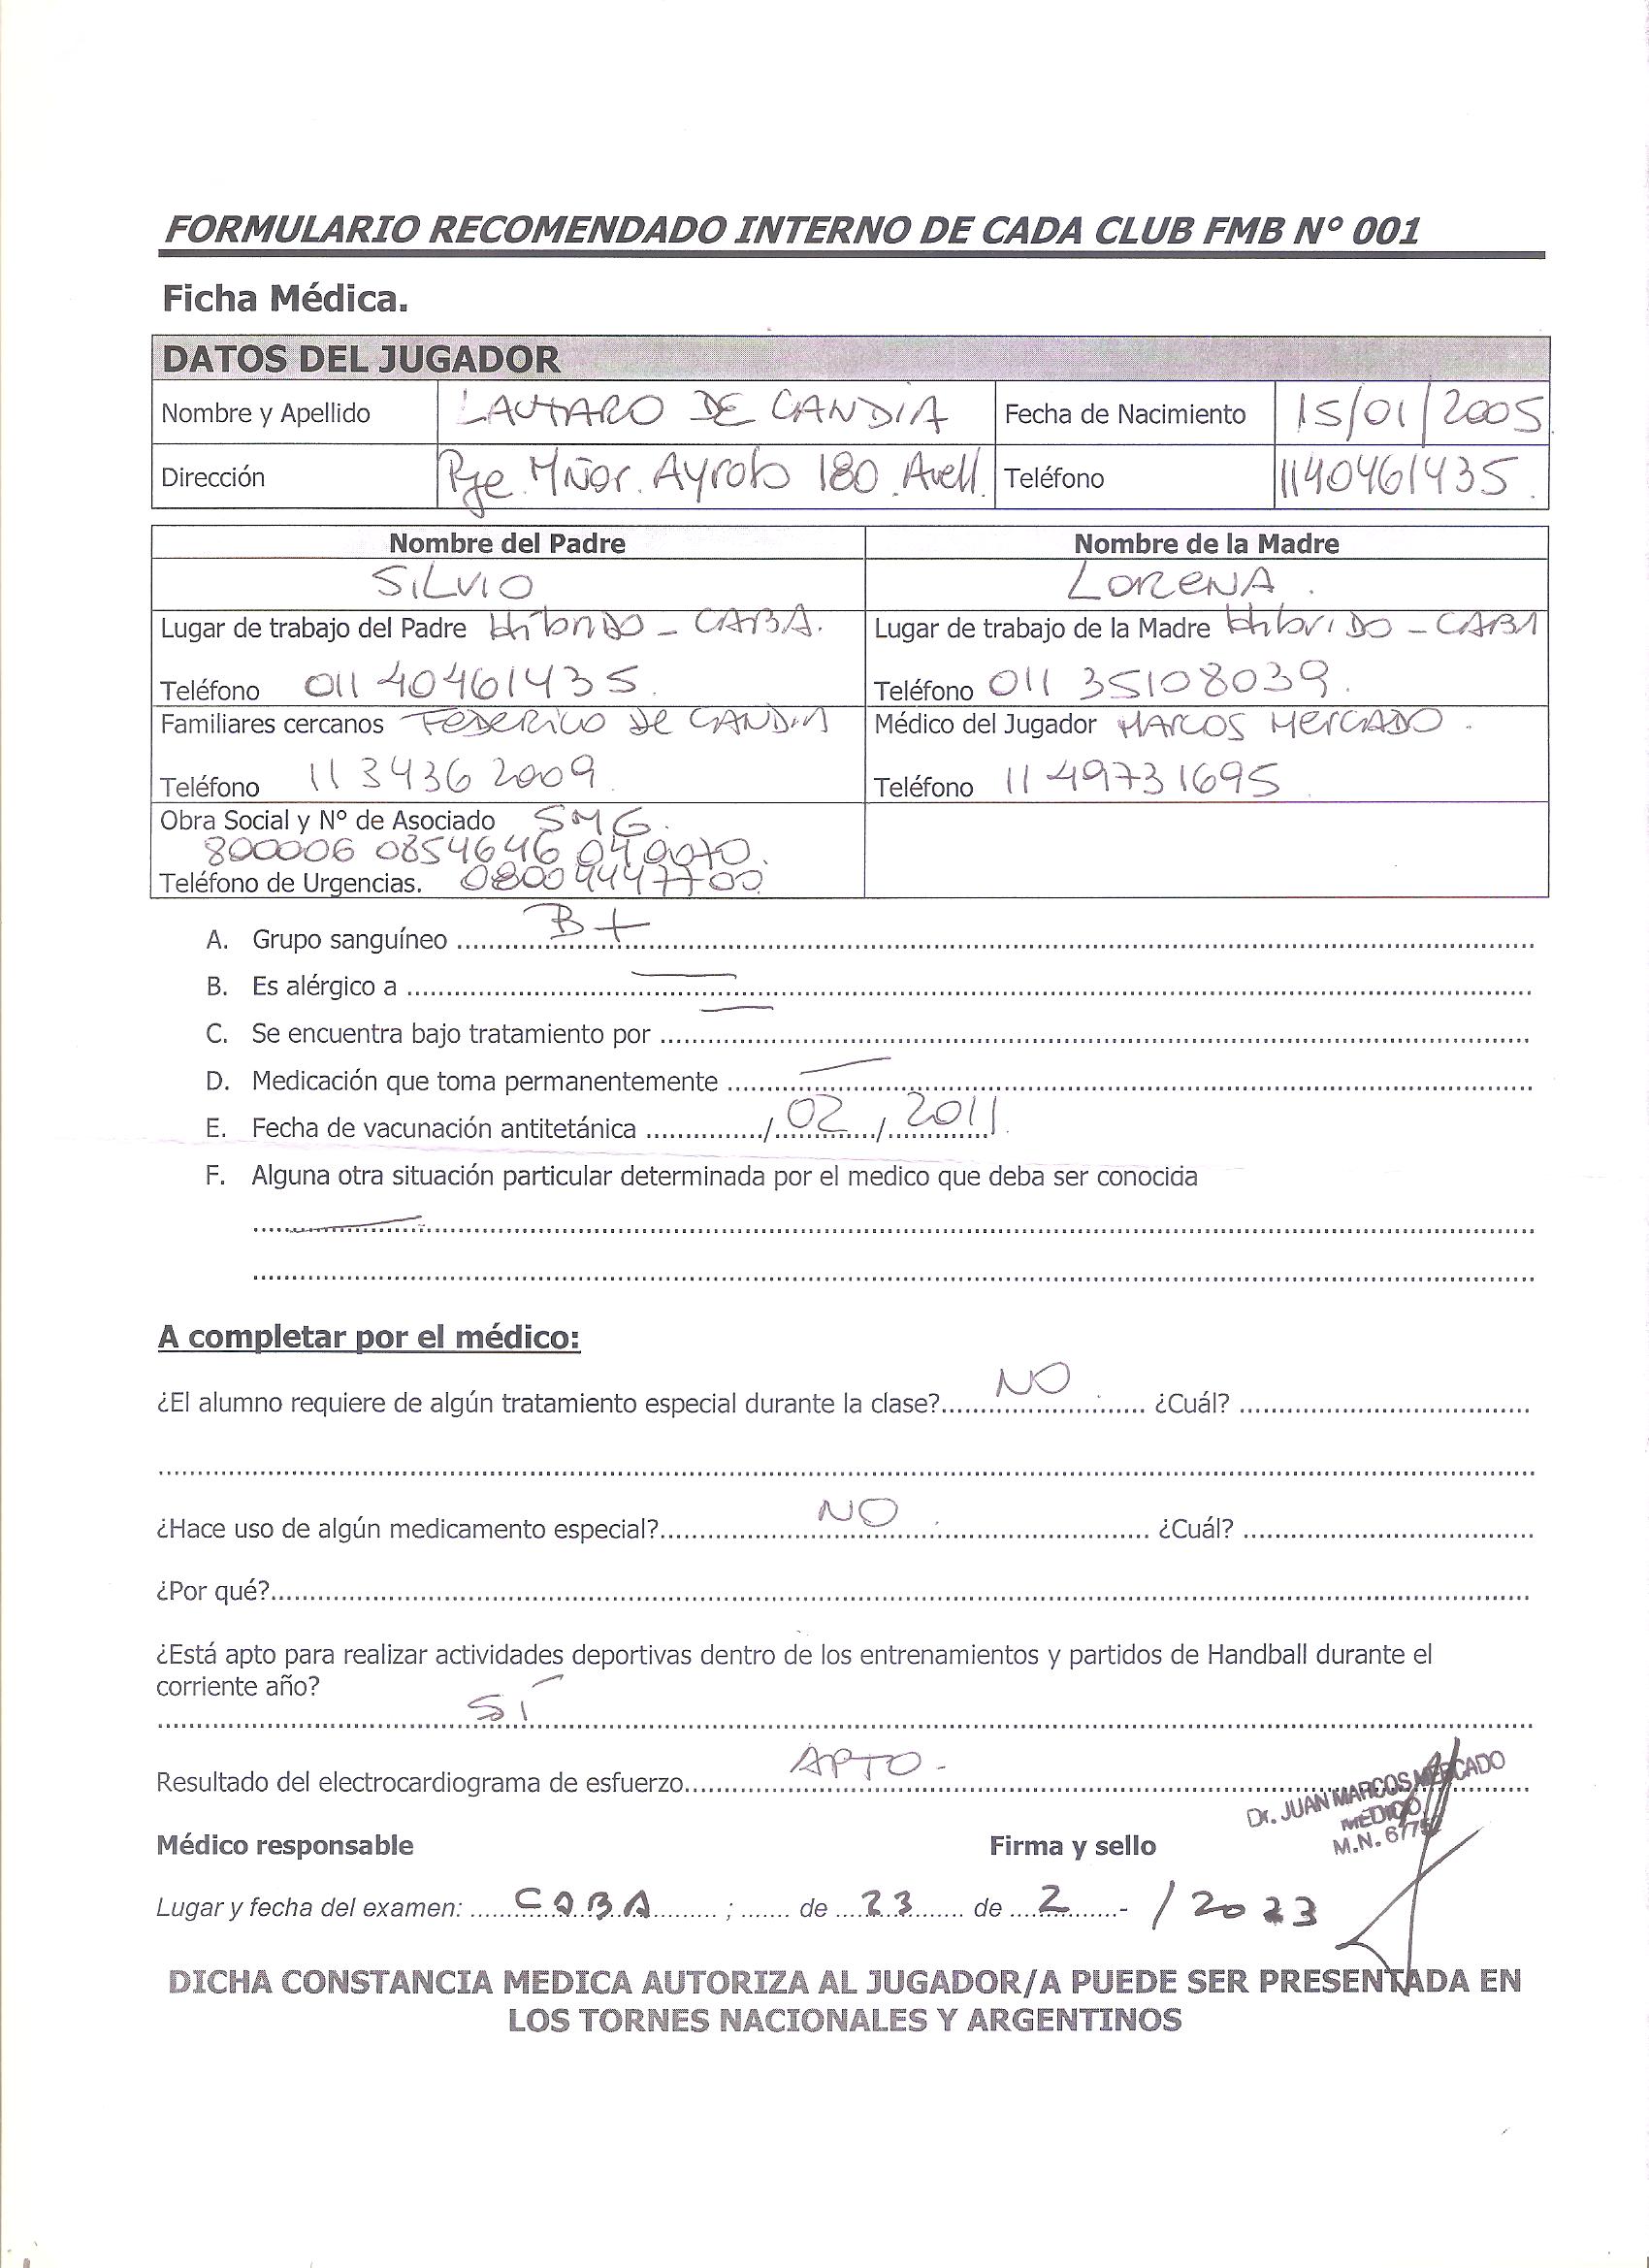 FORMULARIO RECOMENDADO INTERNO DE CADA CLUB FMB N° 001
Ficha Médica.
DATOS DEL JUGADOR
Nombre y Apellido LAUTARO DE CANDIA Fecha de Nacimiento 15/01/2005
Dirección Pje. Mñor. Ayrolo 180 Avell. Teléfono 1140461435.
Nombre del Padre Nombre de la Madre
SILVIO LORENA.
Lugar de trabajo del Padre Híbrido - CABA. Lugar de trabajo de la Madre Híbrido - CABA
Teléfono 011 40461435. Teléfono 011 35108039.
Familiares cercanos FEDERICO DE CANDIA Médico del Jugador MARCOS MERCADO.
Teléfono 11 3436 2009. Teléfono 11 49731695
Obra Social y N° de Asociado SMG.
800006 0854646 04 0070.
Teléfono de Urgencias. 08004447700
A. Grupo sanguíneo B+
B. Es alérgico a —
C. Se encuentra bajo tratamiento por —
D. Medicación que toma permanentemente —
E. Fecha de vacunación antitetánica ............../ 02 / 2011.
F. Alguna otra situación particular determinada por el medico que deba ser conocida
—
A completar por el médico:
¿El alumno requiere de algún tratamiento especial durante la clase? NO ¿Cuál?
¿Hace uso de algún medicamento especial? NO ¿Cuál?
¿Por qué?
¿Está apto para realizar actividades deportivas dentro de los entrenamientos y partidos de Handball durante el
corriente año?
SÍ
Resultado del electrocardiograma de esfuerzo APTO -
Dr. JUAN MARCOS MERCADO
MEDICO
M.N.
Médico responsable Firma y sello
Lugar y fecha del examen: CABA ; ....... de 23 de 2 - / 2023
DICHA CONSTANCIA MEDICA AUTORIZA AL JUGADOR/A PUEDE SER PRESENTADA EN
LOS TORNES NACIONALES Y ARGENTINOS